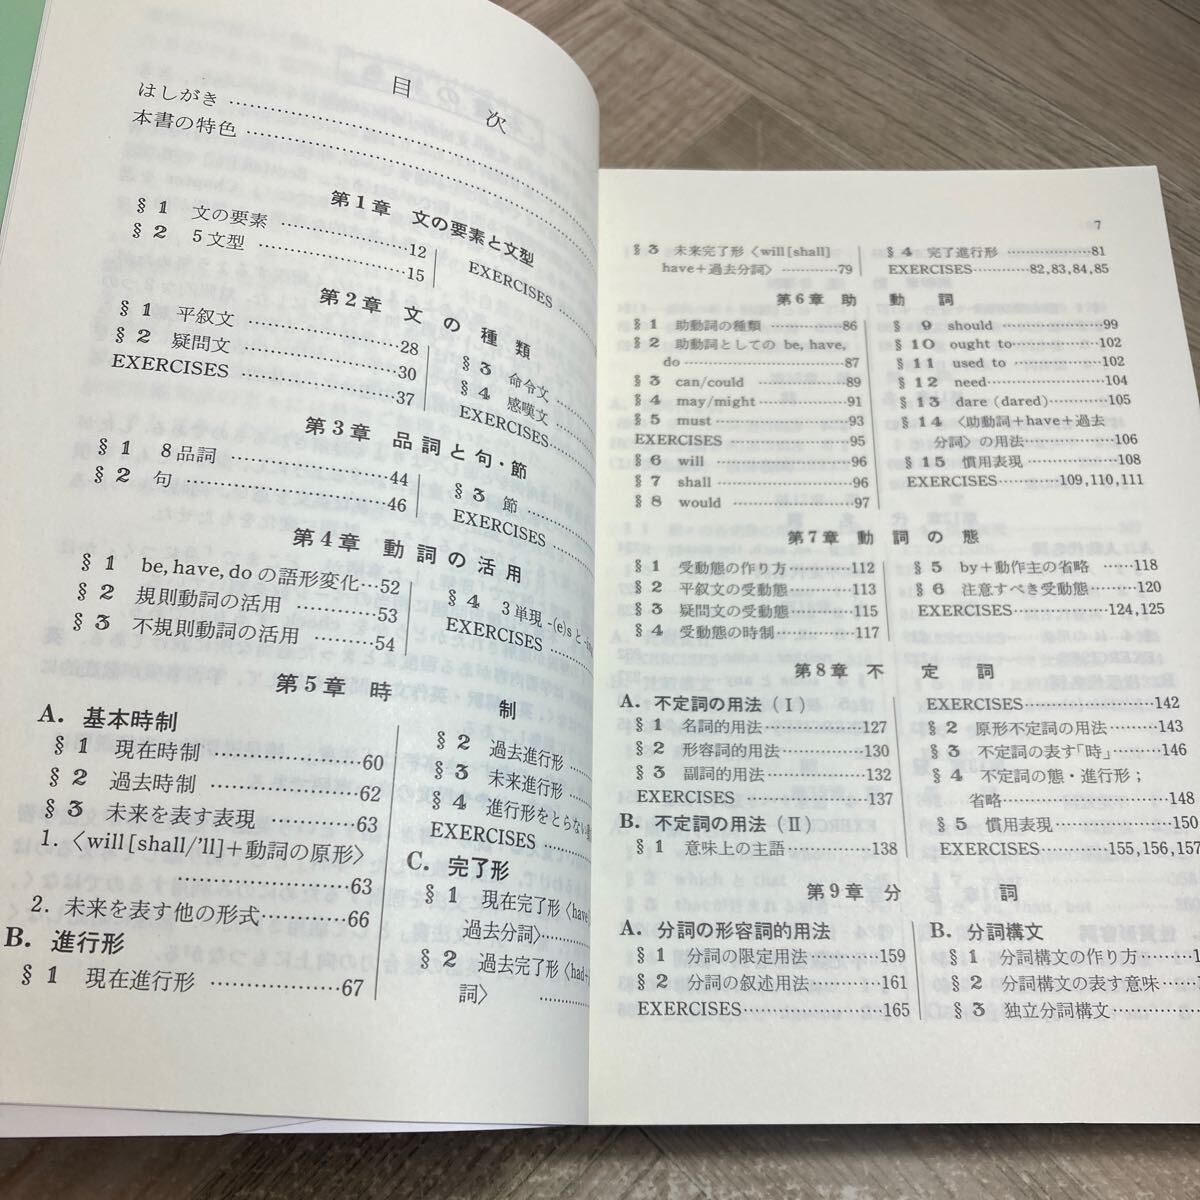 目次
はしがき
本書の特色
第1章 文の要素と文型
§1 文の要素 12
§2 5文型 15
EXERCISES
第2章 文の種類
§1 平叙文 28
§2 疑問文 30
EXERCISES 37
§3 命令文
§4 感嘆文
EXERCISES
第3章 品詞と句・節
§1 8品詞 44
§2 句 46
§3 節
EXERCISES
第4章 動詞の活用
§1 be, have, doの語形変化…52
§2 規則動詞の活用 53
§3 不規則動詞の活用 54
§4 3単現 -(e)s と
EXERCISES
第5章 時制
A. 基本時制
§1 現在時制 60
§2 過去時制 62
§3 未来を表す表現 63
1.〈will[shall/'ll]+動詞の原形〉
63
2. 未来を表す他の形式 66
B. 進行形
§1 現在進行形 67
§2 過去進行形
§3 未来進行形
§4 進行形をとらない
EXERCISES
C. 完了形
§1 現在完了形〈have
過去分詞〉
§2 過去完了形〈had+
詞〉
7
§3 未来完了形〈will[shall]
have+過去分詞〉 79
§4 完了進行形 81
EXERCISES 82,83,84,85
第6章 助動詞
§1 助動詞の種類 86
§2 助動詞としての be, have,
do 87
§3 can/could 89
§4 may/might 91
§5 must 93
EXERCISES 95
§6 will 96
§7 shall 96
§8 would 97
§9 should 99
§10 ought to 102
§11 used to 102
§12 need 104
§13 dare (dared) 105
§14 〈助動詞+have+過去
分詞〉の用法 106
§15 慣用表現 108
EXERCISES 109,110,111
第7章 動詞の態
§1 受動態の作り方 112
§2 平叙文の受動態 113
§3 疑問文の受動態 115
§4 受動態の時制 117
§5 by+動作主の省略 118
§6 注意すべき受動態 120
EXERCISES 124,125
第8章 不定詞
A. 不定詞の用法(Ⅰ)
§1 名詞的用法 127
§2 形容詞的用法 130
§3 副詞的用法 132
EXERCISES 137
B. 不定詞の用法(Ⅱ)
§1 意味上の主語 138
EXERCISES 142
§2 原形不定詞の用法 143
§3 不定詞の表す「時」 146
§4 不定詞の態・進行形;
省略 148
§5 慣用表現 150
EXERCISES 155,156,157
第9章 分詞
A. 分詞の形容詞的用法
§1 分詞の限定用法 159
§2 分詞の叙述用法 161
EXERCISES 165
B. 分詞構文
§1 分詞構文の作り方
§2 分詞構文の表す意味
§3 独立分詞構文